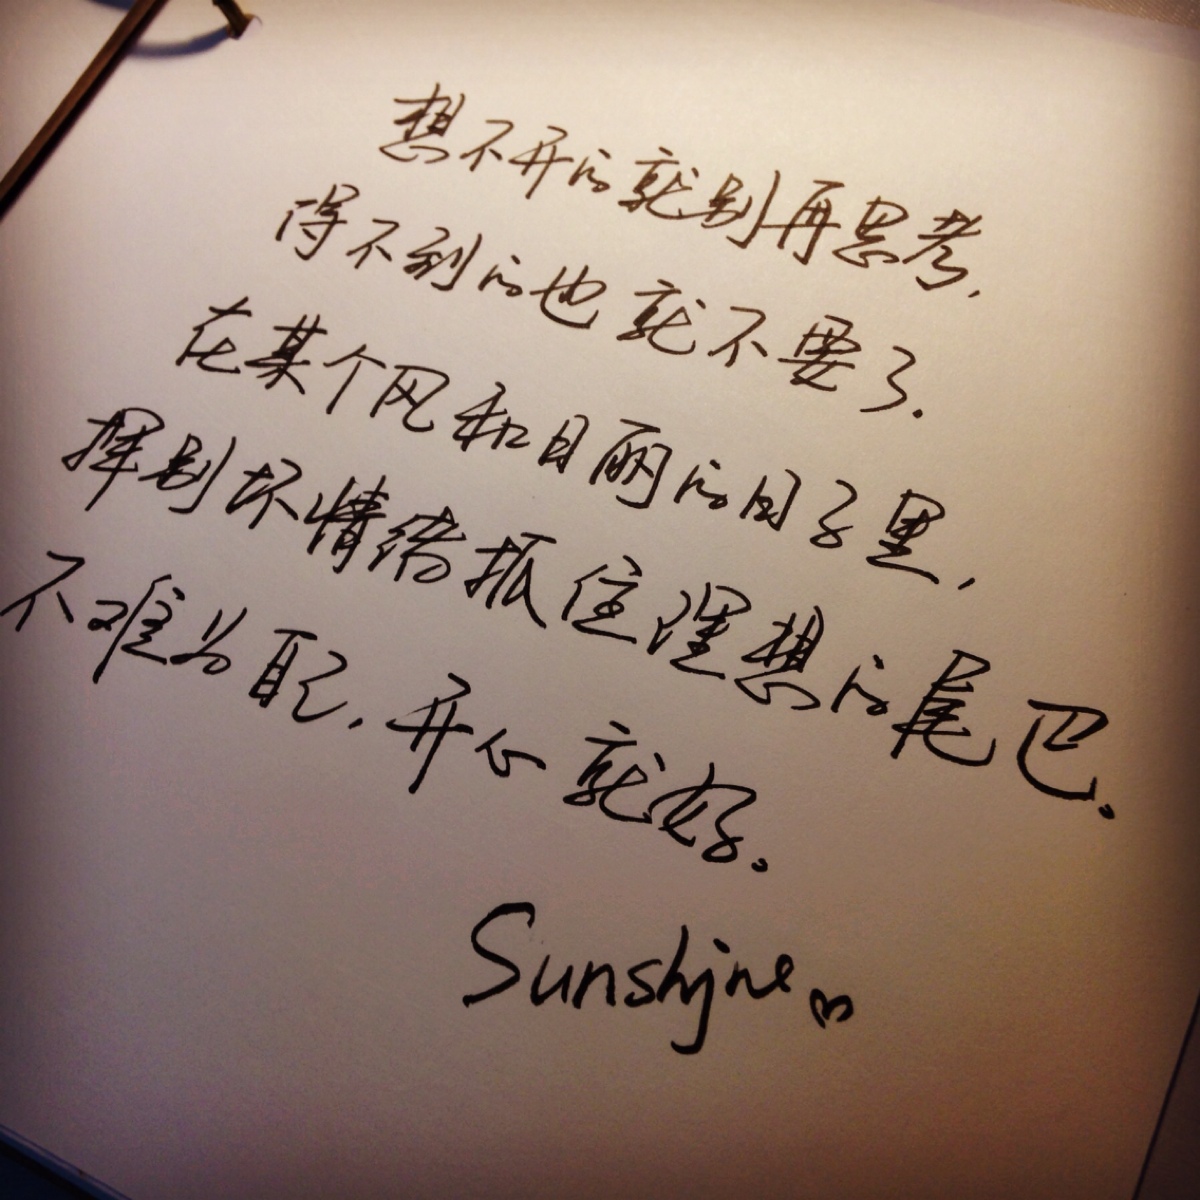 想不开的就别再思考,
得不到的也就不要了.
在某个风和日丽的日子里,
挥别坏情绪抓住理想的尾巴。
不难为自己,开心就好。
Sunshjne